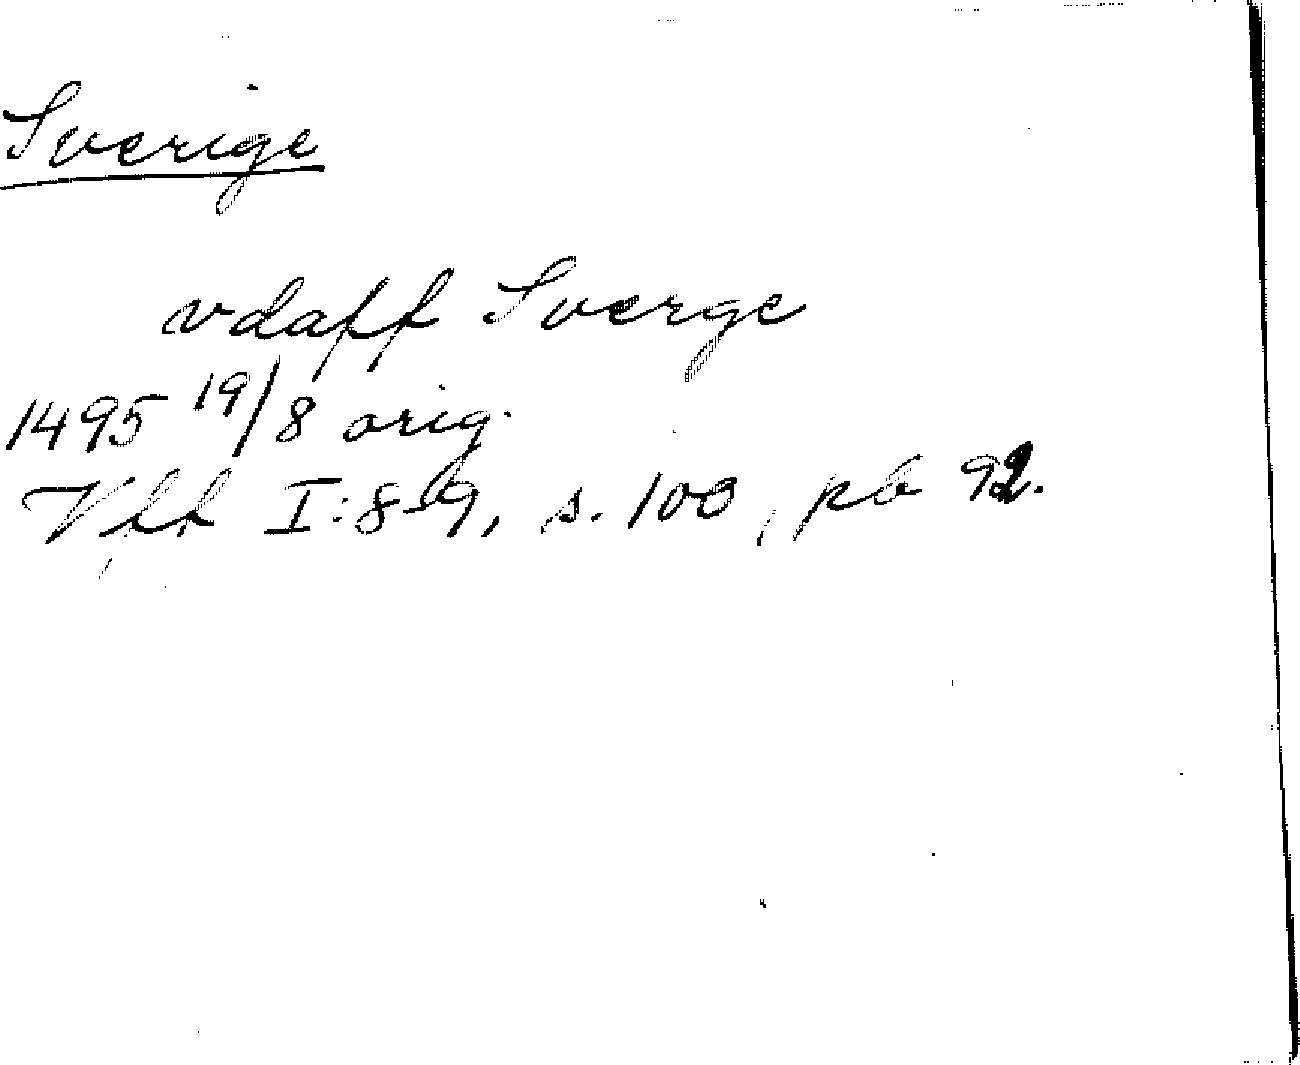 Sverige
vdaff Sverge
1495 19/8 orig.
Vff I:8-9, s. 100, pb 92.